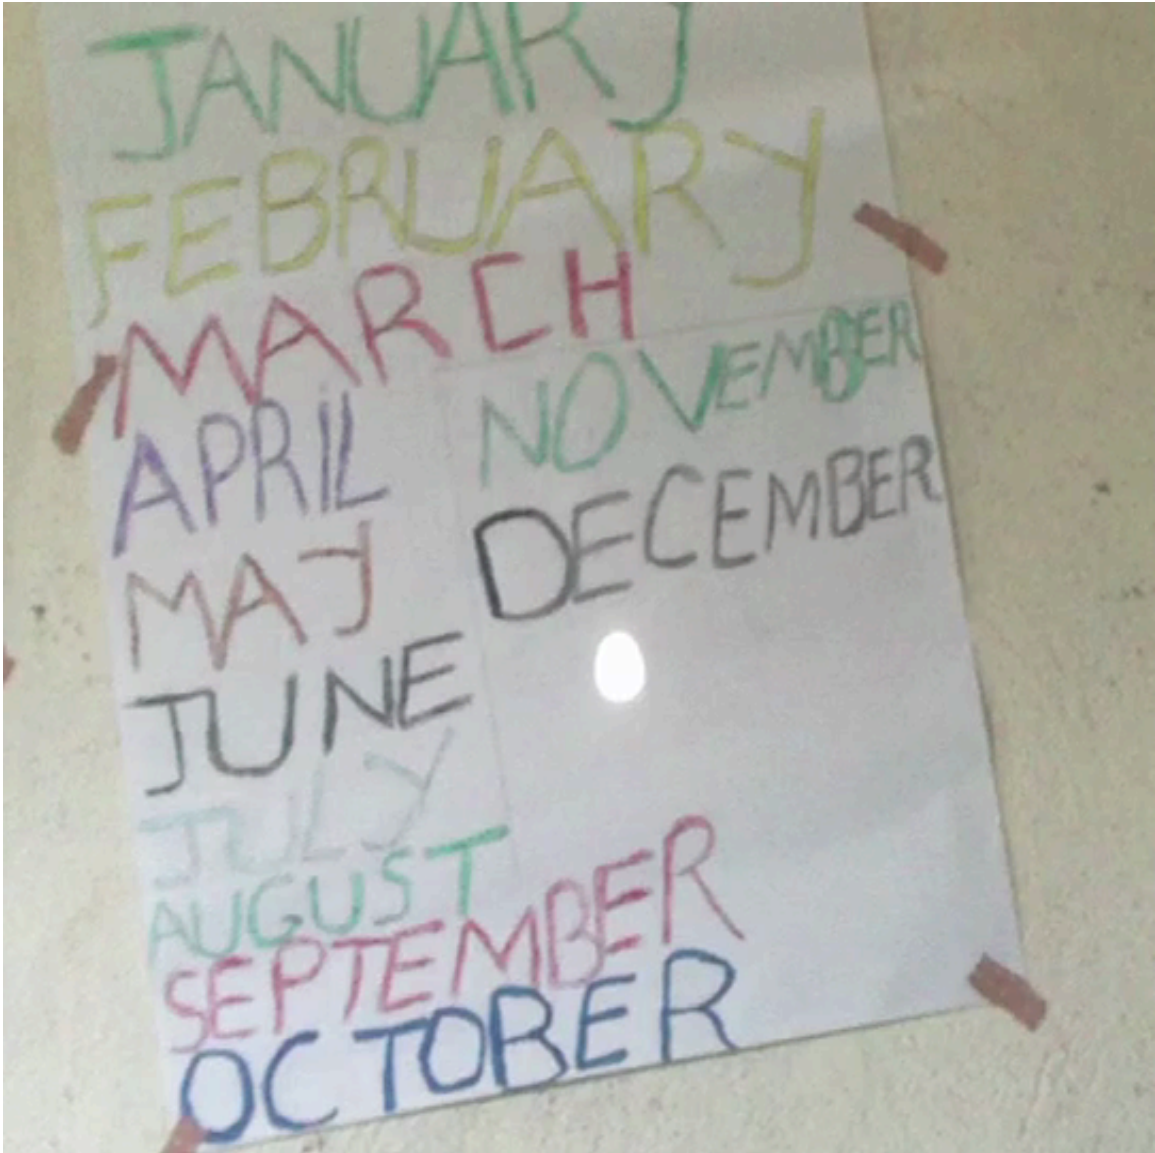 JANUARY
FEBRUARY
MARCH
APRIL
MAY
JUNE
JULY
AUGUST
SEPTEMBER
OCTOBER
NOVEMBER
DECEMBER